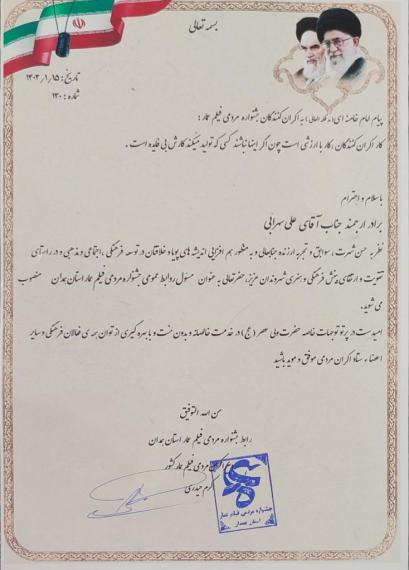 بسمه تعالی
تاریخ: ۱۴۰۳/۱/۱۵
شماره: ۱۳۰
پیام امام خامنه ای (مدظله العالی) به اکران کنندگان جشنواره مردمی فیلم عمار:
کار اکران کنندگان، کار با ارزشی است چون اگر اینها نباشند کسی که تولید میکند کارش بی فایده است.
با سلام و احترام
برادر ارجمند جناب آقای علی سهرابی
نظر به حسن شهرت، سوابق و تجربه ارزنده جنابعالی و به منظور هم افزایی اندیشه های پویا و خلاقتان در توسعه فرهنگی، اجتماعی و مذهبی و در راستای
تقویت و ارتقای بینش فرهنگی و هنری شهروندان عزیز، حضرتعالی به عنوان مسئول روابط عمومی جشنواره مردمی فیلم عمار استان همدان منصوب
می شوید.
امید است در پرتو توجهات خاصه حضرت ولی عصر (عج) در خدمت خالصانه و بدون منت و با بهره گیری از توان همه ی فعالان فرهنگی و سایر
اعضاء ستاد اکران مردمی موفق و موید باشید
من الله التوفیق
رابط جشنواره مردمی فیلم عمار استان همدان
اکران مردمی فیلم عمار کشور
کرم حیدری
جشنواره مردمی فیلم عمار
استان همدان